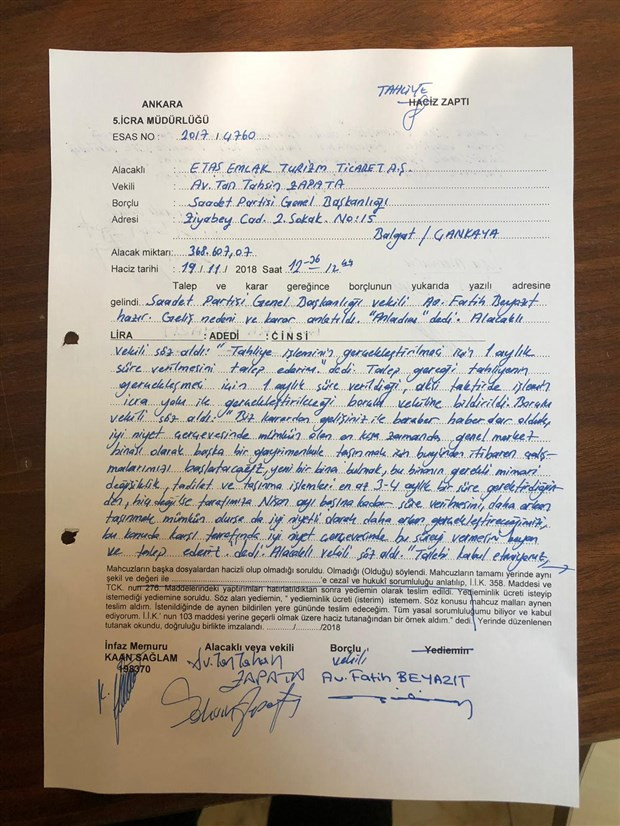 ANKARA
TAHLİYE
HACİZ ZAPTI
5.İCRA MÜDÜRLÜĞÜ
ESAS NO : 2017 / 4760
Alacaklı : ETAŞ EMLAK TURİZM TİCARET A.Ş.
Vekili : Av. Tan Tahsin ZAPATA
Borçlu : Saadet Partisi Genel Başkanlığı
Adresi : Ziyabey Cad. 2. Sokak. No:15
Balgat / ÇANKAYA
Alacak miktarı : 368.607,07
Haciz tarihi : 19 / 11 / 2018 Saat 12
Talep ve karar gereğince borçlunun yukarıda yazılı adresine
gelindi. Saadet Partisi Genel Başkanlığı vekili Av. Fatih Beyazıt
hazır. Geliş nedeni ve karar anlatıldı. "Anladım" dedi. Alacaklı
LİRA : ADEDİ : CİNSİ
vekili söz aldı: "Tahliye işleminin gerçekleştirilmesi için 1 aylık
süre verilmesini talep ederim." dedi. Talep gereği tahliyenin
gerçekleşmesi için 1 aylık süre verildiği, aksi taktirde işlemin
icra yolu ile gerçekleştirileceği borçlu vekiline bildirildi. Borçlu
vekili söz aldı: "Biz karardan gelişiniz ile beraber haberdar olduk,
iyi niyet çerçevesinde mümkün olan en kısa zamanda, genel merkez
binası olarak başka bir gayrimenkule taşınmak için bugünden itibaren çalış-
malarımızı başlatacağız, yeni bir bina bulmak, bu binanın gerekli mimari
değişiklik, tadilat ve taşınma işlemleri en az 3-4 aylık bir süre gerektirdiğin-
den, hiç değilse tarafımıza Nisan ayı başına kadar süre verilmesini, daha erken
taşınmak mümkün olursa da iyi niyetli olarak daha erken gerçekleştireceğimizi,
bu konuda karşı tarafında iyi niyet çerçevesinde bu süreyi vermesini beyan
ve talep ederiz. dedi. Alacaklı vekili söz aldı. "Talebi kabul etmiyoruz,
Mahcuzların başka dosyalardan hacizli olup olmadığı soruldu. Olmadığı (Olduğu) söylendi. Mahcuzların tamamı yerinde aynı
şekil ve değeri ile ........................'e cezaî ve hukukî sorumluluğu anlatılıp, İ.İ.K. 358. Maddesi ve
TCK. nun 276. Maddelerindeki yaptırımları hatırlatıldıktan sonra yediemin olarak teslim edildi. Yediemin ücreti isteyip
istemediği yediemine soruldu. Söz alan yediemin, " yedieminlik ücreti (isterim) istemem. Söz konusu mahcuz malları aynen
teslim aldım. İstenildiğinde de aynen bildirilen yere gününde teslim edeceğim. Tüm yasal sorumluluğumu biliyor ve kabul
ediyorum. İ.İ.K.' nun 103 maddesi yerine geçerli olmak üzere haciz tutanağından bir örnek aldım." dedi. Yerinde düzenlenen
tutanak okundu, doğruluğu birlikte imzalandı. ........../........../2018
İnfaz Memuru Alacaklı veya vekili Borçlu Yediemin
KAAN SAĞLAM Av. Tan Tahsin vekili
198370 ZAPATA Av. Fatih BEYAZIT